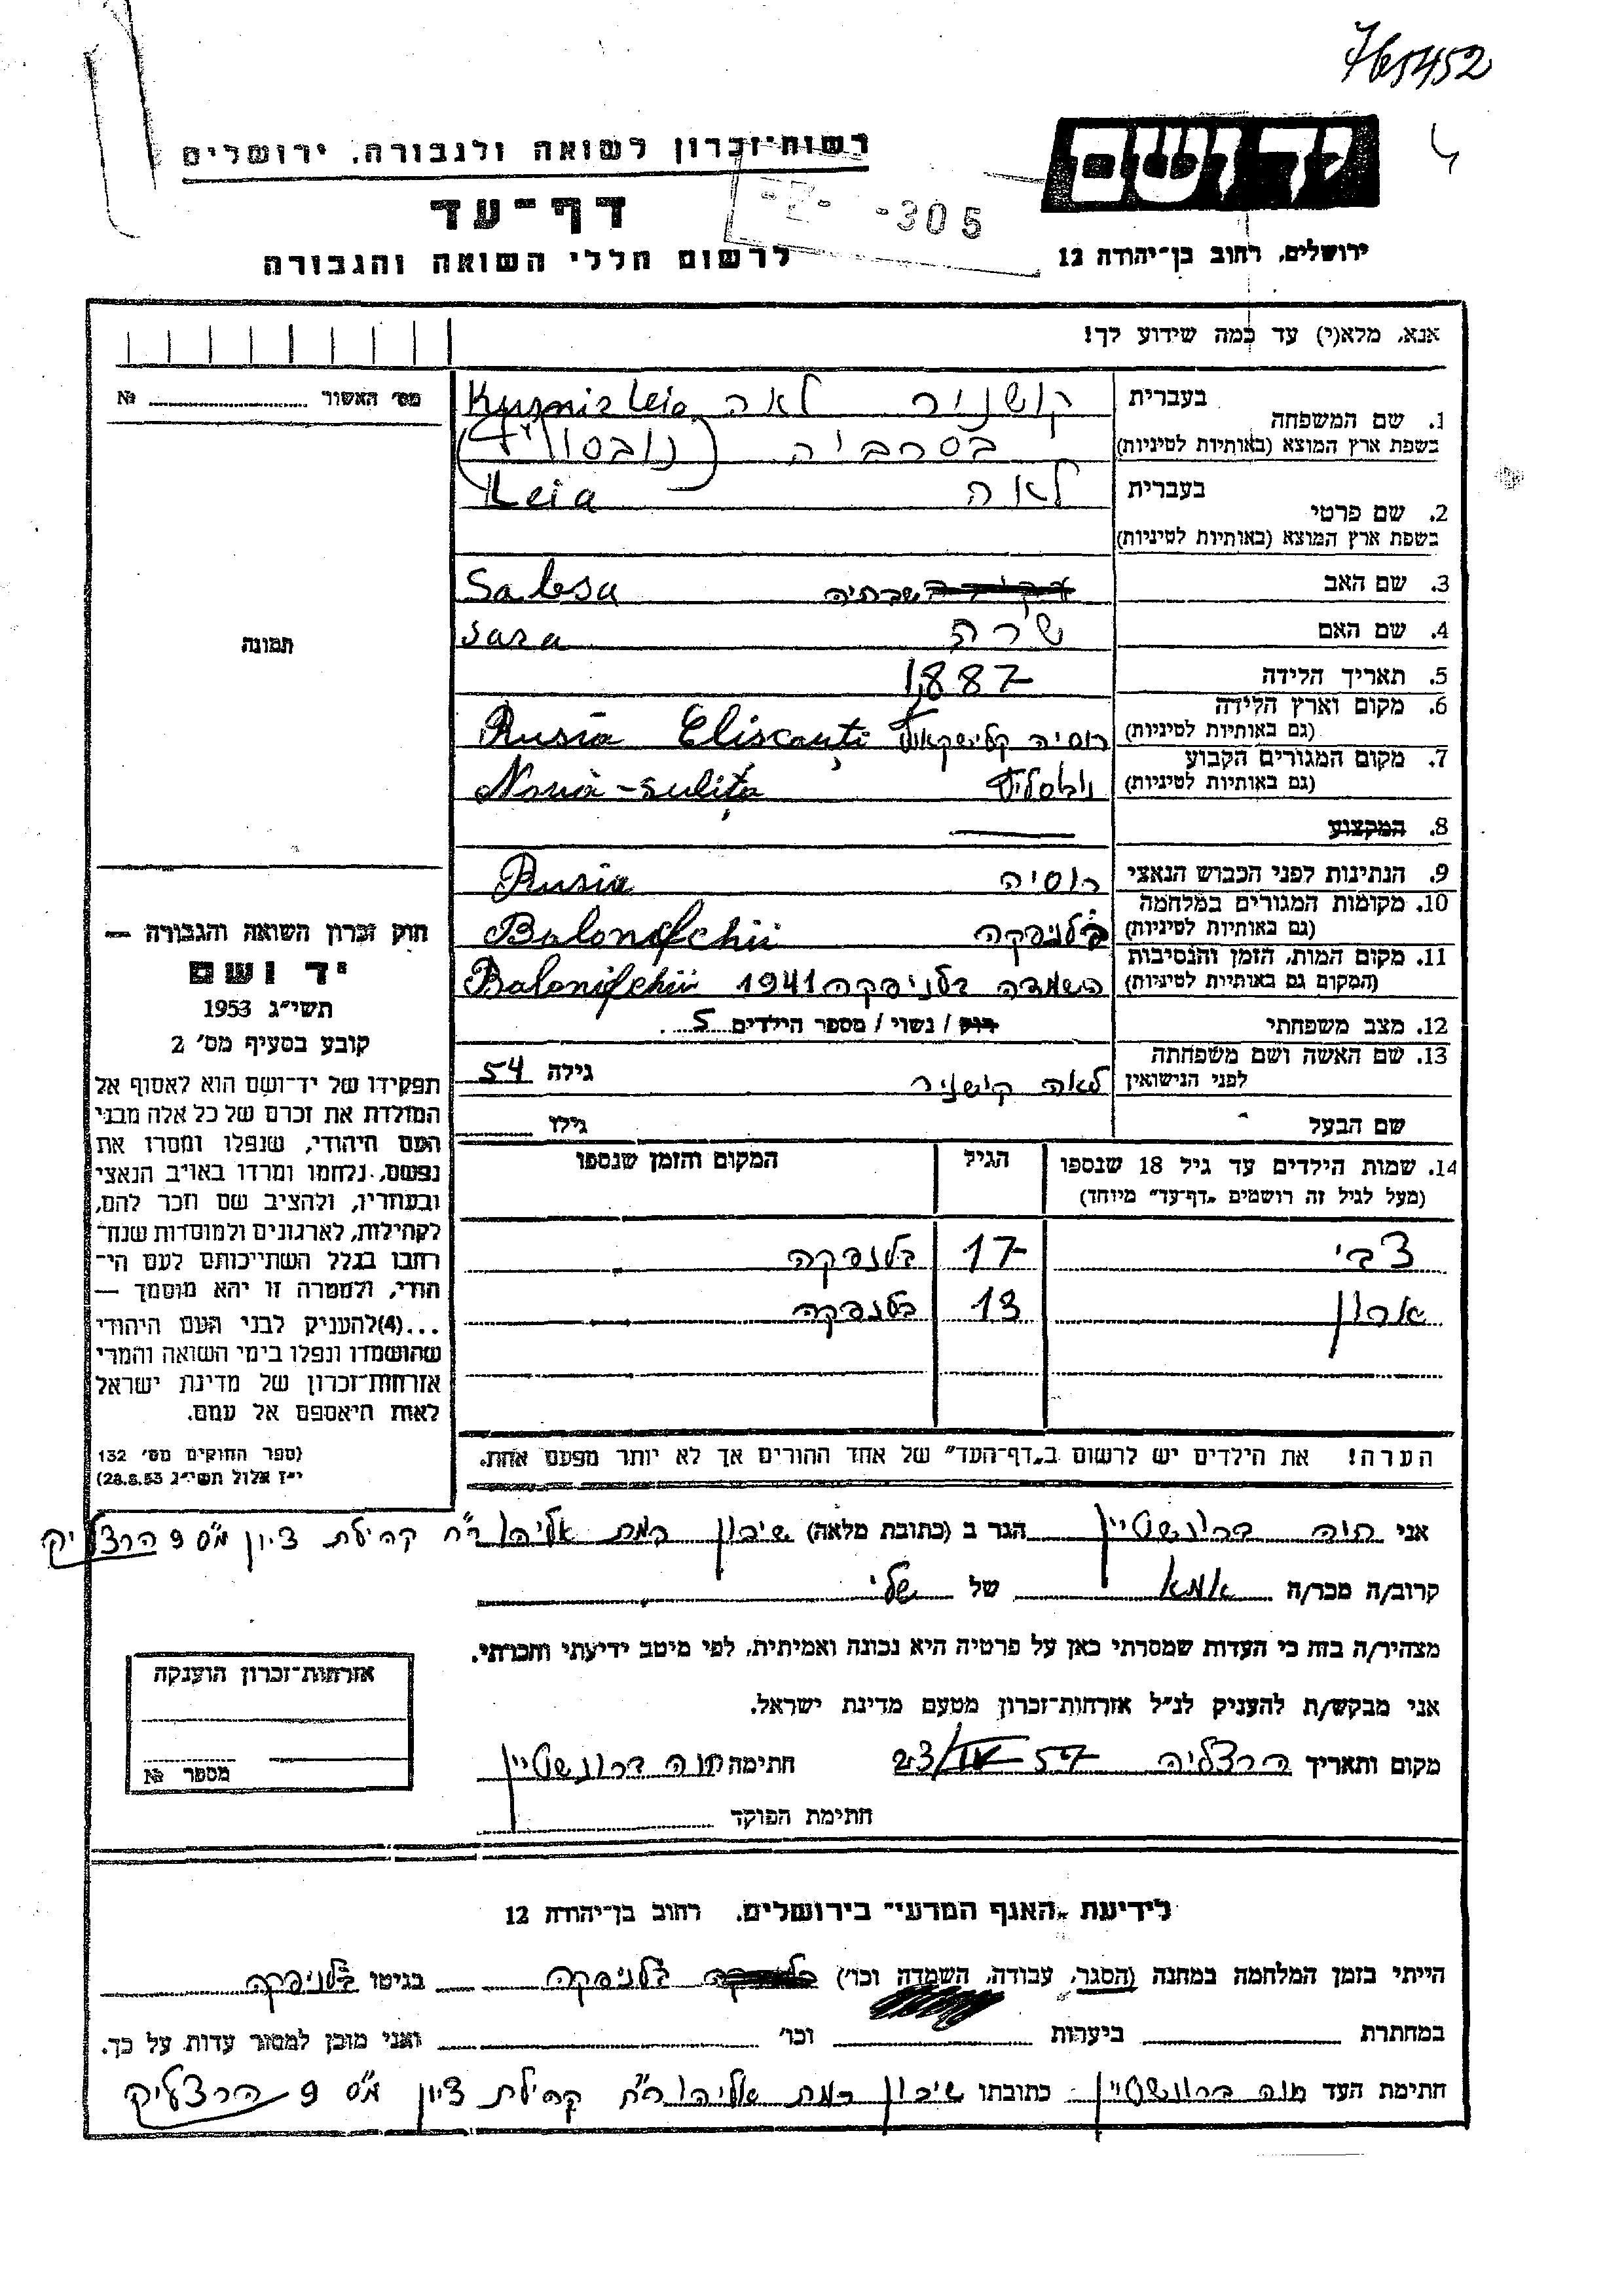 765452
רשות־זכרון לשואה ולגבורה. ירושלים
יד ושם
-305
דף־עד
לרשום חללי השואה והגבורה
ירושלים. רחוב בן־יהודה 12
אנא, מלא(י) עד כמה שידוע לך!
מס' האשור № 
1. שם המשפחה בעברית קושניר לאה Kuşnir Leia
בשפת ארץ המוצא (באותיות לטיניות) בסרביה
2. שם פרטי בעברית לאה Leia
בשפת ארץ המוצא (באותיות לטיניות)
3. שם האב Salesa
4. שם האם שרה Sara
תמונה
5. תאריך הלידה 1887
6. מקום וארץ הלידה רוסיה Rusia Eliscauți
(גם באותיות לטיניות)
7. מקום המגורים הקבוע Noua-sulița
(גם באותיות לטיניות)
8. המקצוע
9. הנתינות לפני הכבוש הנאצי רוסיה Rusia
10. מקומות המגורים במלחמה
(גם באותיות לטיניות)
11. מקום המות, הזמן והנסיבות 1941
(המקום גם באותיות לטיניות)
12. מצב משפחתי רוק / נשוי / מספר הילדים 5
13. שם האשה ושם משפחתה לאה קושניר גילה 54
לפני הנישואין
שם הבעל גילו
חוק זכרון השואה והגבורה —
יד ושם
תשי״ג 1953
קובע בסעיף מס׳ 2
תפקידו של יד־ושם הוא לאסוף אל
המולדת את זכרם של כל אלה מבני
העם היהודי, שנפלו ומסרו את
נפשם, נלחמו ומרדו באויב הנאצי
ובעוזריו, ולהציב שם וזכר להם,
לקהילות, לארגונים ולמוסדות שנח־
רבו בגלל השתייכותם לעם הי־
הודי, ולמטרה זו יהא מוסמך —
...(4)להעניק לבני העם היהודי
שהושמדו ונפלו בימי השואה והמרי
אזרחות־זכרון של מדינת ישראל
לאות היאספם אל עמם.
(ספר החוקים מס׳ 132
י״ז אלול תשי״ג 28.8.53)
14. שמות הילדים עד גיל 18 שנספו הגיל המקום והזמן שנספו
(מעל לגיל זה רושמים „דף־עד״ מיוחד)
צבי 17 בלניפקה
אהרון 13 בלניפקה
הערה! את הילדים יש לרשום ב„דף־העד״ של אחד ההורים אך לא יותר מפעם אחת.
אני חוה ברונשטיין הגר ב (כתובת מלאה) שיכון רמת אליהו רח' קהילת ציון מס 9 הרצליה
קרוב/ה מכר/ה אמא של שלי
מצהיר/ה בזה כי העדות שמסרתי כאן על פרטיה היא נכונה ואמיתית, לפי מיטב ידיעתי והכרתי.
אני מבקש/ת להעניק לנ״ל אזרחות־זכרון מטעם מדינת ישראל.
מקום ותאריך הרצליה 23/IV 57 חתימה חוה ברונשטיין
חתימת הפוקד
אזרחות־זכרון הוענקה
מספר №
לידיעת „האגף המדעי״ בירושלים. רחוב בן־יהודה 12
הייתי בזמן המלחמה במחנה (הסגר, עבודה, השמדה וכו׳) בלניפקה בגיטו בלניפקה
במחתרת ביערות וכו׳ ואני מוכן למסור עדות על כך.
חתימת העד חוה ברונשטיין כתובתו שיכון רמת אליהו רח' קהילת ציון מס 9 הרצליה